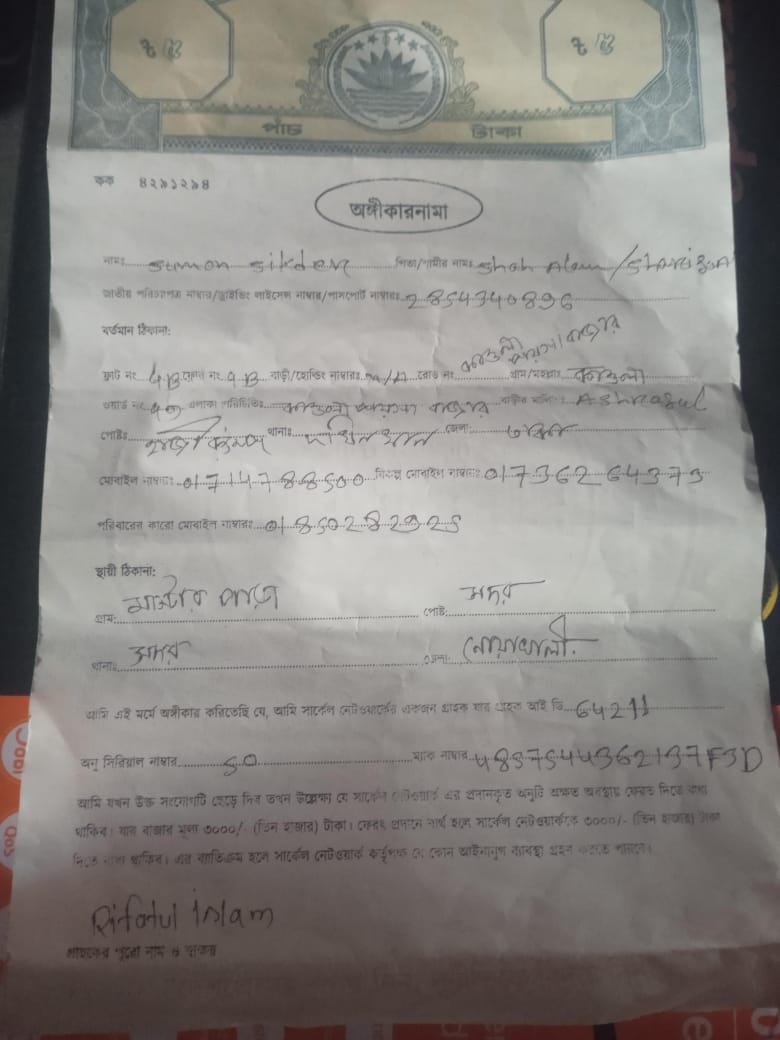 ৫ ৫
পাঁচ টাকা
কক ৪২৯১২৯৪
অঙ্গীকারনামা
নামঃ Sumon Sikder পিতা/স্বামীর নামঃ Shah Alam/
জাতীয় পরিচয়পত্র নাম্বার/ড্রাইভিং লাইসেন্স নাম্বার/পাসপোর্ট নাম্বারঃ 2854340896
বর্তমান ঠিকানা:
ফ্ল্যাট নং 4B ফ্লোর নং বাড়ী/হোল্ডিং নাম্বারঃ N/A রোড নং বাজার গ্রাম/মহল্লাঃ কাওলা
ওয়ার্ড নং এলাকা পরিচিতিঃ কাওলা বাজার বাড়ির মালিকঃ Ashraful
পোষ্টঃ থানাঃ দক্ষিনখান জেলাঃ ঢাকা
মোবাইল নাম্বারঃ 01714788500 বিকল্প মোবাইল নাম্বারঃ 01736264373
পরিবারের কারো মোবাইল নাম্বারঃ 01850282925
স্থায়ী ঠিকানা:
গ্রাম: মাস্টার পাড়া পোষ্ট: সদর
থানাঃ সদর জেলা: নোয়াখালী.
আমি এই মর্মে অঙ্গীকার করিতেছি যে, আমি সার্কেল নেটওয়ার্কের একজন গ্রাহক যার গ্রাহক আই ডি 64211
অনু সিরিয়াল নাম্বার 50 ম্যাক নাম্বার 4857544362137F3D
আমি যখন উক্ত সংযোগটি ছেড়ে দিব তখন উল্লেক্ষ্য যে সার্কেল নেটওয়ার্ক এর প্রদানকৃত অনুটি অক্ষত অবস্থায় ফেরত দিতে বাধ্য
থাকিব। যার বাজার মূল্য ৩০০০/- (তিন হাজার) টাকা। ফেরৎ প্রদানে ব্যর্থ হলে সার্কেল নেটওয়ার্ককে ৩০০০/- (তিন হাজার) টাকা
দিতে বাধ্য থাকিব। এর ব্যাতিক্রম হলে সার্কেল নেটওয়ার্ক কর্তৃপক্ষ যে কোন আইনানুগ ব্যবস্থা গ্রহন করতে পারবে।
Rifatul islam
গ্রাহকের পুরো নাম ও স্বাক্ষর